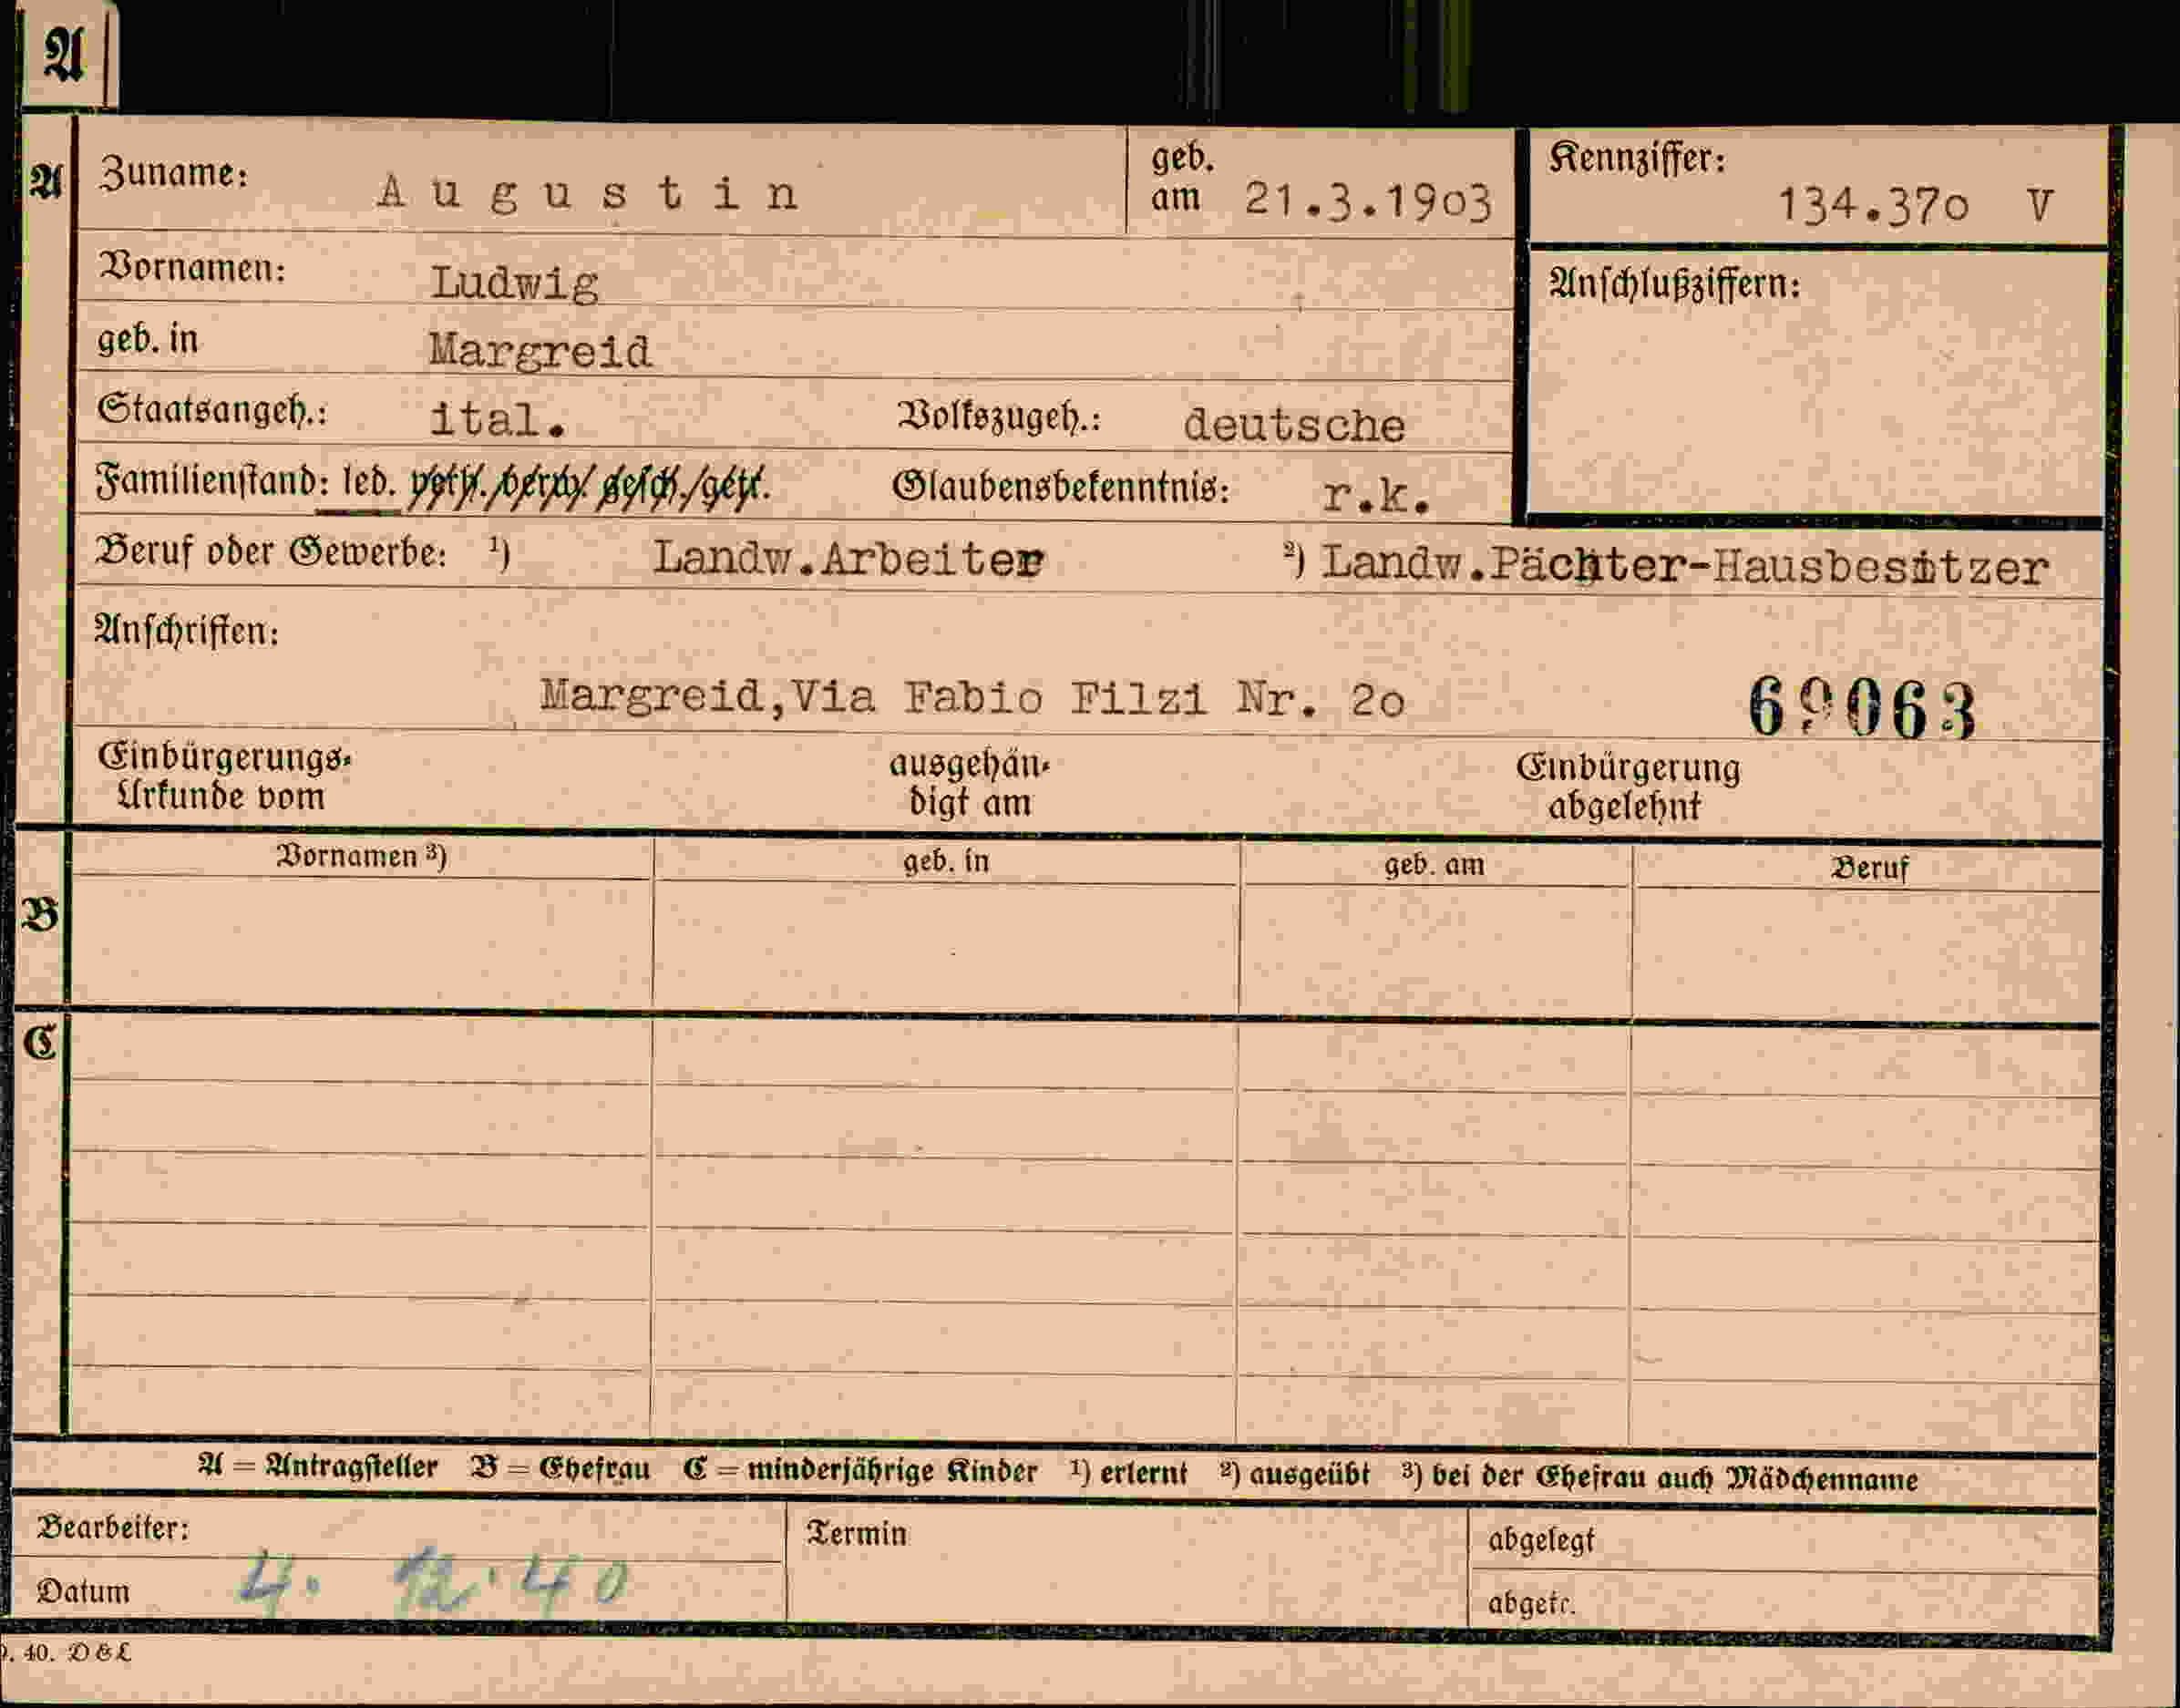 A
A
Zuname: Augustin geb. am 21.3.1903 Kennziffer: 134.370 V
Vornamen: Ludwig Anschlußziffern:
geb. in Margreid
Staatsangeh.: ital. Volkszugeh.: deutsche
Familienstand: led. verh./verw./gesch./getr. Glaubensbekenntnis: r.k.
Beruf oder Gewerbe: ¹) Landw.Arbeiter ²) Landw.Pächter-Hausbesitzer
Anschriften:
Margreid,Via Fabio Filzi Nr. 20 69063
Einbürgerungs- ausgehän- Einbürgerung
Urkunde vom digt am abgelehnt
Vornamen ³) geb. in geb. am Beruf
B
C
A = Antragsteller B = Ehefrau C = minderjährige Kinder ¹) erlernt ²) ausgeübt ³) bei der Ehefrau auch Mädchenname
Bearbeiter: Termin abgelegt
Datum 4. 12. 40 abgetr.
40. D&L